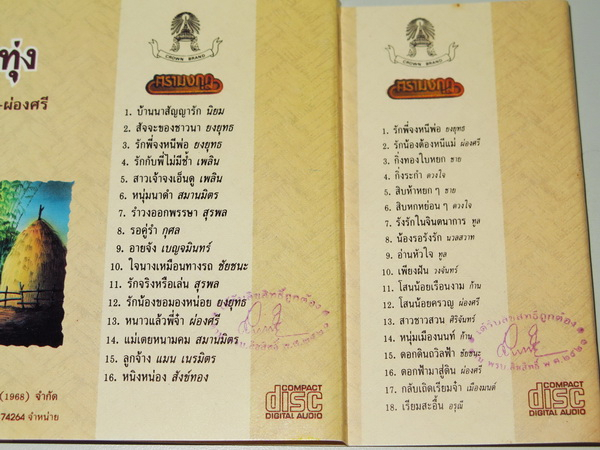 ทุ่ง
-ผ่องศรี
(1968) จำกัด
74264 จำหน่าย
CROWN BRAND
ตรามงกุฎ
1. บ้านนาสัญญารัก นิยม
2. สัจจะของชาวนา ยงยุทธ
3. รักพี่จงหนีพ่อ ยงยุทธ
4. รักกับพี่ไม่มีช้ำ เพลิน
5. สาวเจ้าจงเอ็นดู เพลิน
6. หนุ่มนาดำ สมานมิตร
7. รำวงออกพรรษา สุรพล
8. รอคู่รำ กุศล
9. อายจัง เบญจมินทร์
10. ใจนางเหมือนทางรถ ชัยชนะ
11. รักจริงหรือเล่น สุรพล
12. รักน้องขอมองหน่อย ยงยุทธ
13. หนาวแล้วพี่จ๋า ผ่องศรี
14. แม่เตยหนามคม สมานมิตร
15. ลูกจ้าง แมน เนรมิตร
16. หนิงหน่อง สังข์ทอง
COMPACT
disc
DIGITAL AUDIO
CROWN BRAND
ตรามงกุฎ
1. รักพี่จงหนีพ่อ ยงยุทธ
2. รักน้องต้องหนีแม่ ผ่องศรี
3. กิ่งทองใบหยก ชาย
4. กิ่งระกำ ดวงใจ
5. สิบห้าหยก ๆ ชาย
6. สิบหกหย่อน ๆ ดวงใจ
7. รังรักในจินตนาการ ทูล
8. น้องรอรังรัก นวลสวาท
9. อ่านหัวใจ ทูล
10. เพียงฝัน วงจันทร์
11. โสนน้อยเรือนงาม ก้าน
12. โสนน้อยครวญ ผ่องศรี
13. สาวชาวสวน ศิริจันทร์
14. หนุ่มเมืองนนท์ ก้าน
15. ดอกดินถวิลฟ้า ชัยชนะ
16. ดอกฟ้ามาสู่ดิน ผ่องศรี
17. กลับเถิดเรียมจ๋า เมืองมนต์
18. เรียมสะอื้น อรุณี
COMPACT
disc
DIGITAL AUDIO